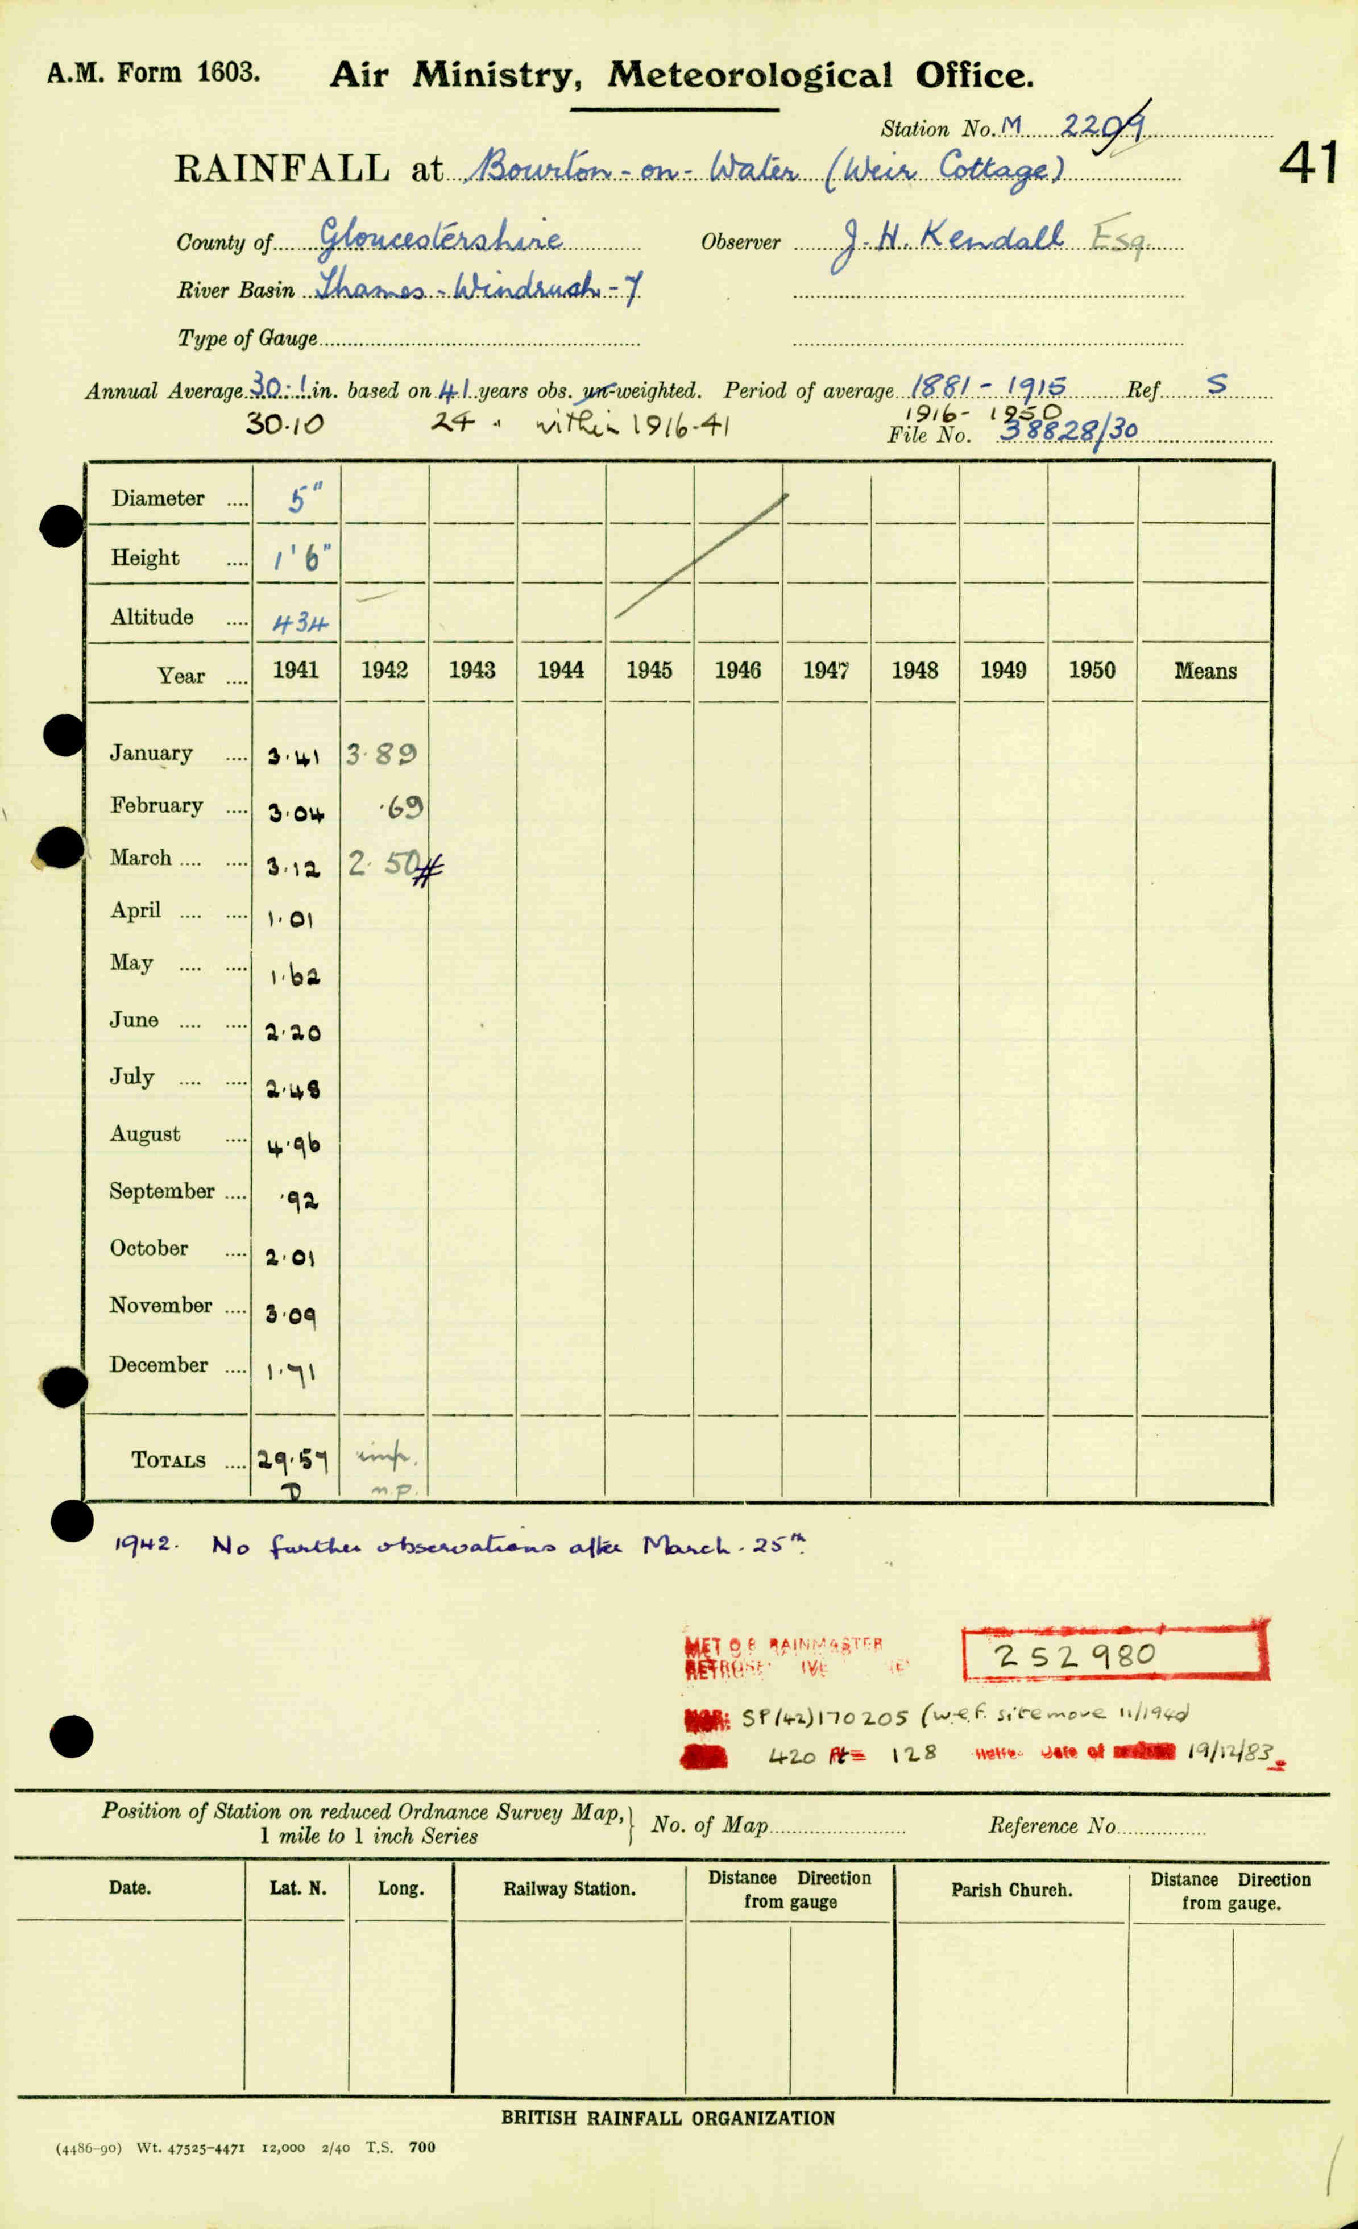 A.M. Form 1603. Air Ministry, Meteorological Office.
Station No. M 2209
41
RAINFALL at Bourton-on-Water (Weir Cottage)
County of Gloucestershire Observer J. H. Kendall Esq.
River Basin Thames - Windrush - 7
Type of Gauge
Annual Average 30.1 in. based on 41 years obs. un-weighted. Period of average 1881 - 1915 Ref. S
30.10 24 " within 1916-41 1916- 1950
File No. 38828/30
Diameter .... 5"
Height .... 1'6"
Altitude .... 434
Year .... 1941 1942 1943 1944 1945 1946 1947 1948 1949 1950 Means
January .... 3.41 3.89
February .... 3.04 .69
March .... .... 3.12 2.50#
April .... .... 1.01
May .... .... 1.62
June .... .... 2.20
July .... .... 2.48
August .... 4.96
September .... .92
October .... 2.01
November .... 3.09
December .... 1.71
TOTALS .... 29.57 imp.
D n.p.
1942. No further observations after March. 25th
MET O 8 RAINMASTER
252980
NGR: SP(42)170205 (w.e.f. site move 11/1940)
420 ft = 128 Metres Date of 19/12/83
Position of Station on reduced Ordnance Survey Map, } No. of Map Reference No.
1 mile to 1 inch Series
Date. Lat. N. Long. Railway Station. Distance Direction from gauge Parish Church. Distance Direction from gauge.
BRITISH RAINFALL ORGANIZATION
(4486-90) Wt. 47525-4471 12,000 2/40 T.S. 700